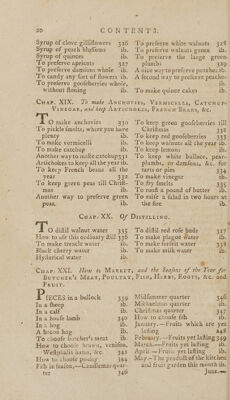 20 CONTENTS.
Syrup of clove gilliflowers 326
Syrup of peach blossoms ib.
Syrup of quinces ib.
To preserve apricots 327
To preserve damsons whole ib.
To candy any sort of flowers ib.
To preserve gooseberries whole,
without stoning ib.
To preserve white walnuts 328
To preserve walnuts green ib.
To preserve the large green
plumbs 329
A nice way to preserve peaches ib.
A second way to preserve peaches
ib.
To make quince cakes ib.
CHAP. XIX. To make ANCHOVIES, VERMICELLI, CATCHUP,
VINEGAR, and keep ARTICHOKES, FRENCH BEANS, &c.
TO make anchovies 330
To pickle smelts, where you have
plenty ib.
To make vermicelli ib.
To make catchup ib.
Another way to make catchup 331
Artichokes to keep all the year ib.
To keep French beans all the
year 332
To keep green peas till Christ-
mas ib.
Another way to preserve green
peas ib.
To keep green gooseberries till
Christmas 332
To keep red gooseberries 333
To keep walnuts all the year ib.
To keep lemons ib.
To keep white bullace, pear-
plumbs, or damsons, &c. for
tarts or pies 334
To make vinegar ib.
To fry smelts 335
To roast a pound of butter ib.
To raise a salad in two hours at
the fire ib.
CHAP. XX. Of DISTILLING.
TO distil walnut water 335
How to use this ordinary still 336
To make treacle water ib.
Black cherry water ib.
Hysterical water ib.
To distil red rose buds 337
To make plague water ib.
To make surfeit water 338
To make milk water ib.
CHAP. XXI. How to MARKET, and the Seasons of the Year for
BUTCHER'S MEAT, POULTRY, FISH, HERBS, ROOTS, &c. and
FRUIT.
PIECES in a bullock 339
In a sheep ib.
In a calf ib.
In a house lamb 340
In a hog ib.
A bacon hog ib.
To choose butcher's meat ib.
How to choose brawn, venison,
Westphalia hams, &c. 342
How to choose poultry 344
Fish in season,—Candlemas quar-
ter 346
Midsummer quarter 346
Michaelmas quarter ib.
Christmas quarter 347
How to choose fish ib.
January.—Fruits which are yet
lasting 348
February.—Fruits yet lasting 349
March.—Fruits yet lasting ib.
April.—Fruits yet lasting ib.
May.—The product of the kitchen
and fruit garden this month ib.
June.—